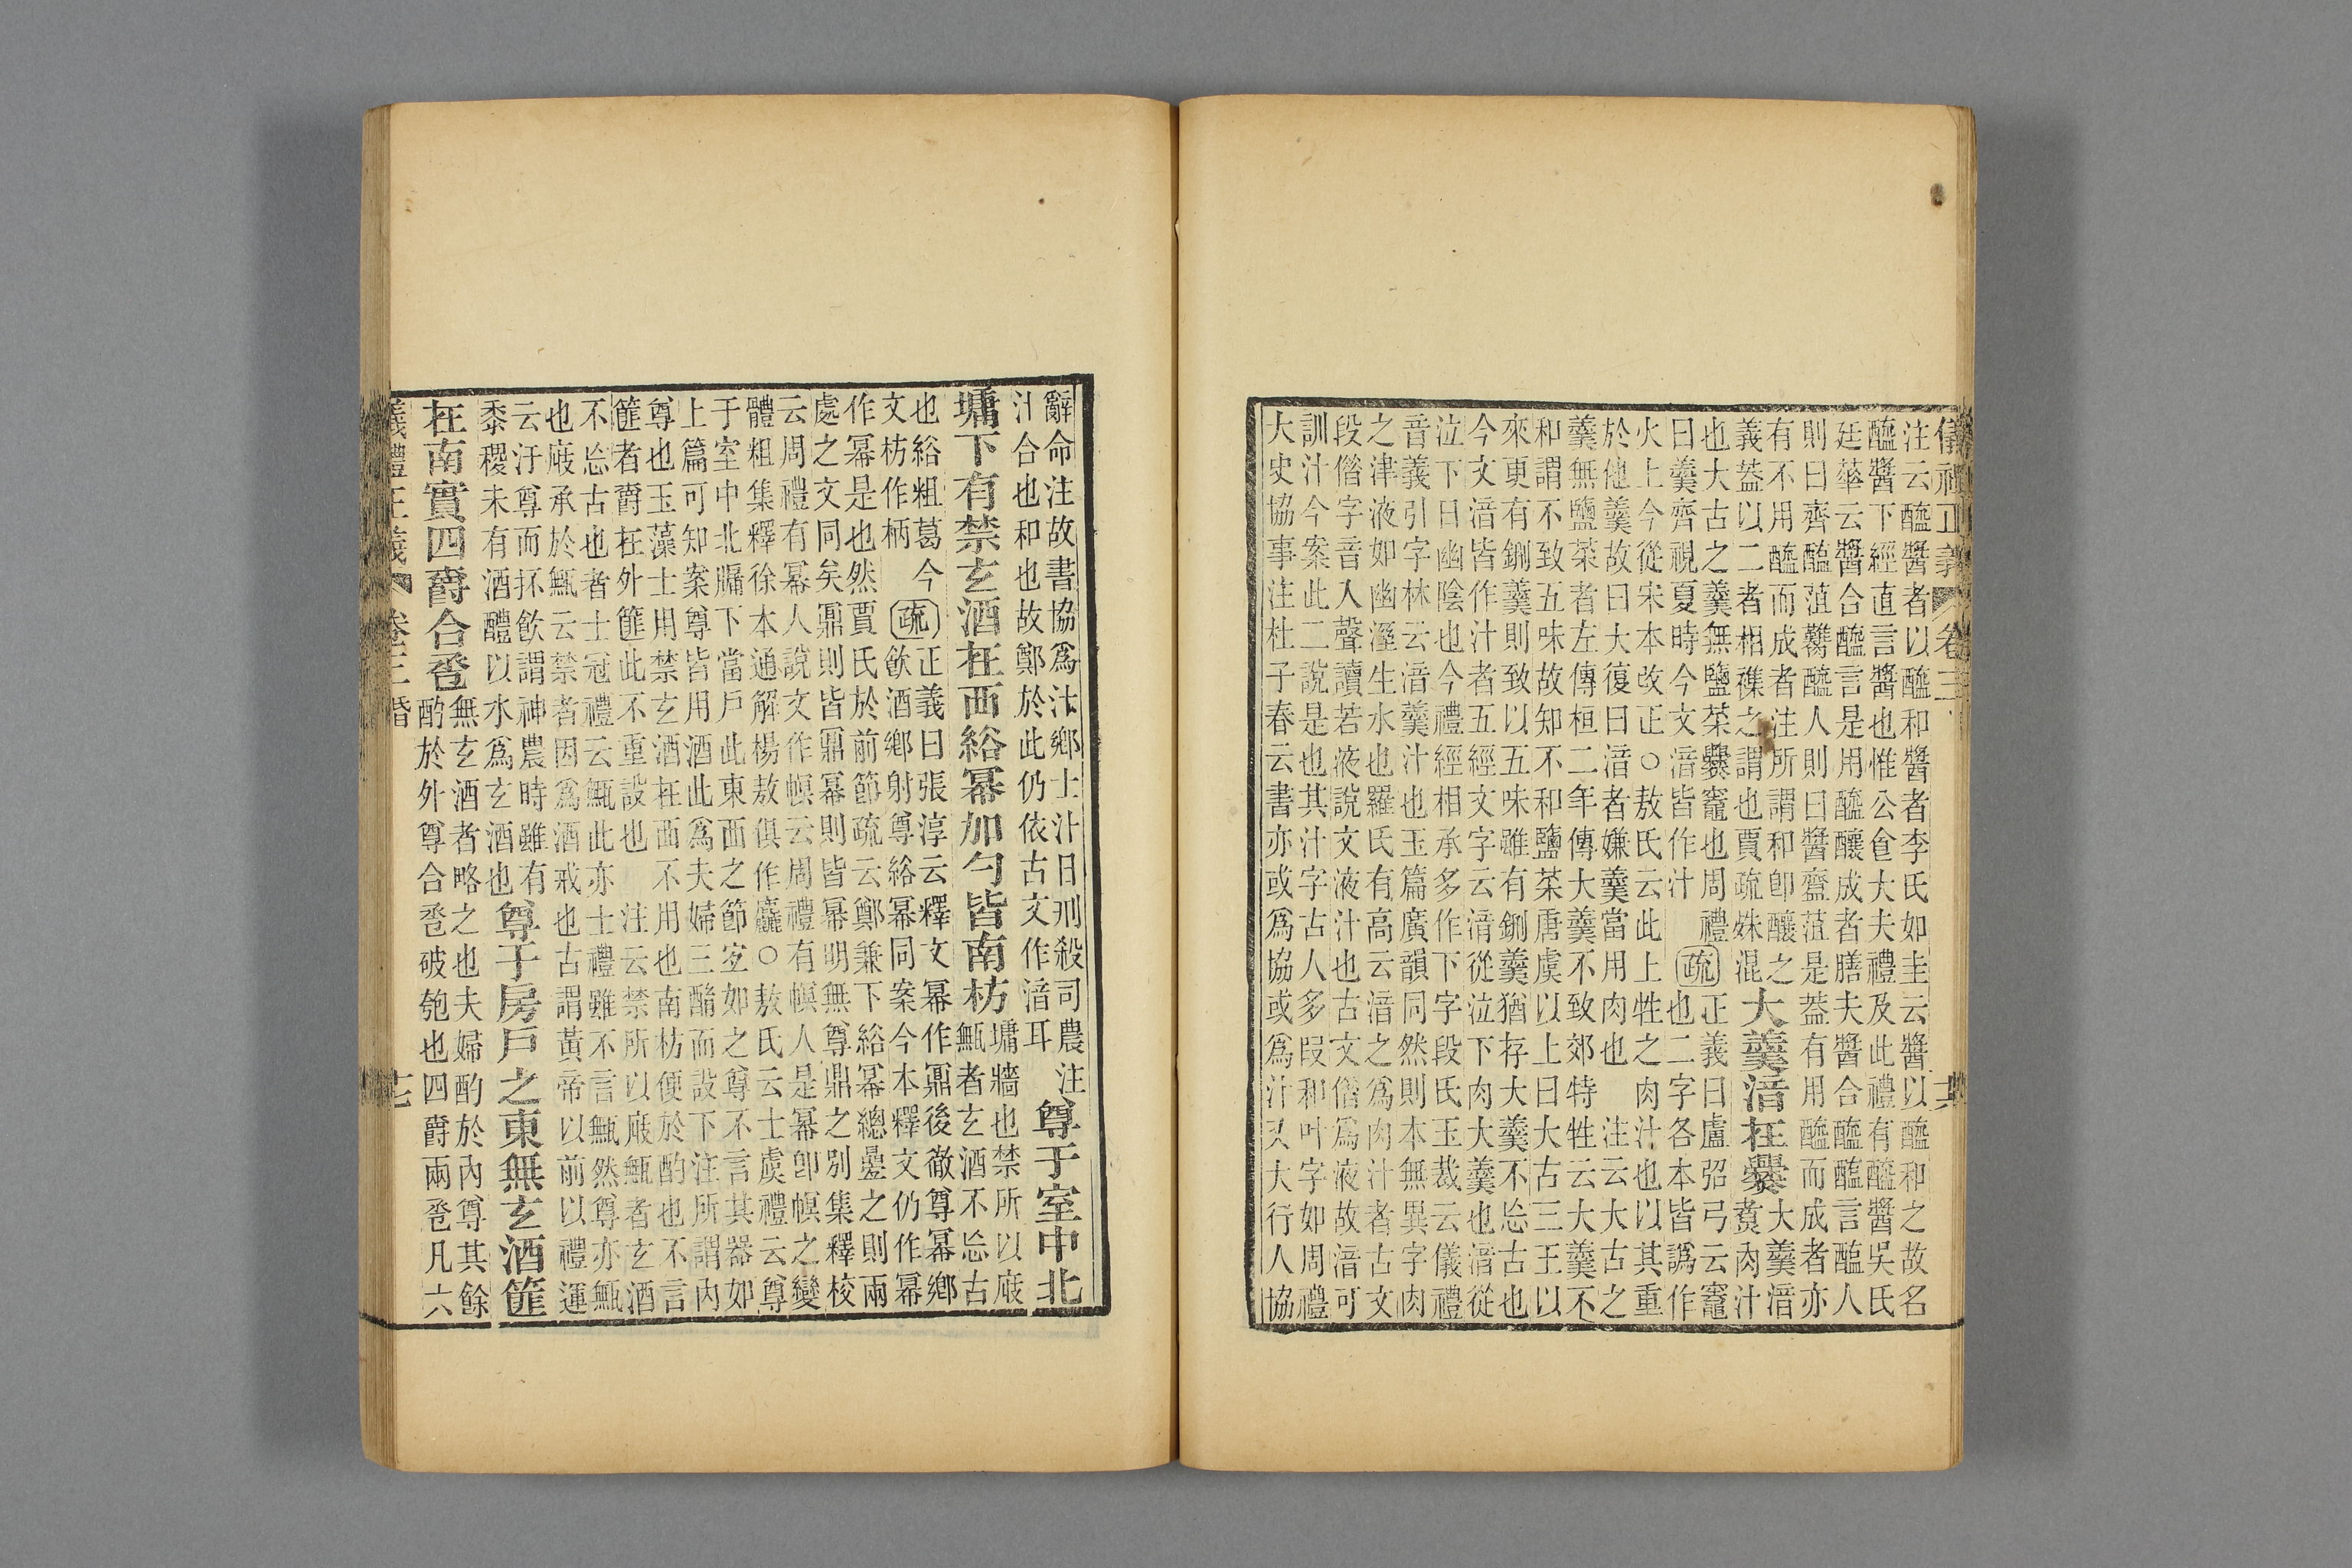 儀禮正義 卷三 其
注云醯醬者以醯和醬者李氏如圭云醬以醯和之故名
醯醬下經直言醬也惟公食大夫禮及此禮有醯醬吳氏
廷華云醬合醯言是用醯釀成者膳夫醬合醯醢言醢人
則曰齊醢菹臡醢人則曰醬齏菹是葢有用醯而成者亦
有不用醯而成者注所謂和卽釀之 大羹湆
義葢以二者相襍之謂也賈疏姝混 大羹湆在爨 煑肉汁
也大古之羹無鹽菜爨竈也周禮 正義曰盧弨弓云竈
曰羹齊視夏時今文湆皆作汁 疏 也二字各本皆譌作
火上今從宋本改正○敖氏云此上牲之肉汁也以其重
於他羹故曰大復曰湆者嫌羹當用肉也 注云大古之
羹無鹽菜者左傳桓二年傳大羹不致郊特牲云大羹不
和謂不致五味故知不和鹽菜唐虞以上曰大古三王以
來更有鉶羹則致以五味雖有鉶羹猶存大羹不忘古也
今文湆皆作汁者五經文字云湆從泣下肉大羹也湆從
泣下日幽陰也今禮經相承多作下字段氏玉裁云儀禮
音義引字林云湆羹汁也玉篇廣韻同然則本無異字肉
之津液如幽溼生水也羅氏有高云湆之爲肉汁者古文
段偕字音人聲讀若液說文液汁也古文偕爲液故湆可
訓汁今案此二說是也其汁字古人多叚和叶字如周禮
大史協事注杜子春云書亦或爲協或爲汁又大行人協
辭命注故書協爲汁鄉士汁日刑殺司農注
汁合也和也故鄭於此仍依古文作湆耳 尊于室中北
墉下有禁玄酒在西綌冪加勺皆南枋 墉牆也禁所以庪
甒者玄酒不忘古
也綌粗葛今 疏 正義曰張淳云釋文冪作鼏後徹尊冪鄉
文枋作柄 飲酒鄉射尊綌冪同案今本釋文仍作冪
作冪是也然賈氏於前節疏云鄭兼下綌冪總疊之則兩
處之文同矣鼏則皆鼏冪則皆冪明無尊鼎之別集釋校
云周禮有冪人說文作幎云周禮有幎人是冪卽幎之變
體粗集釋徐本通解楊敖俱作麤○敖氏云士虞禮云尊
于室中北牖下當戶此東西之節定如之尊不言其器如
上篇可知案尊皆用酒此爲夫婦三酳而設下注所謂內
尊也玉藻士用禁玄酒在西不用也南枋便於酌也不言
篚者爵在外篚此不重設也 注云禁所以庪甒者玄酒
不忘古也者士冠禮云甒此亦士禮雖不言甒然尊亦甒
也庪承於甒云禁者因爲酒戒也古謂黃帝以前以禮運
云汙尊而抔飲謂神農時雖有
黍稷未有酒醴以水爲玄酒也 尊于房戶之東無玄酒篚
在南實四爵合卺 無玄酒者略之也夫婦酌於內尊其餘
酌於外尊合卺破匏也四爵兩卺凡六
義禮正義 卷三 昏